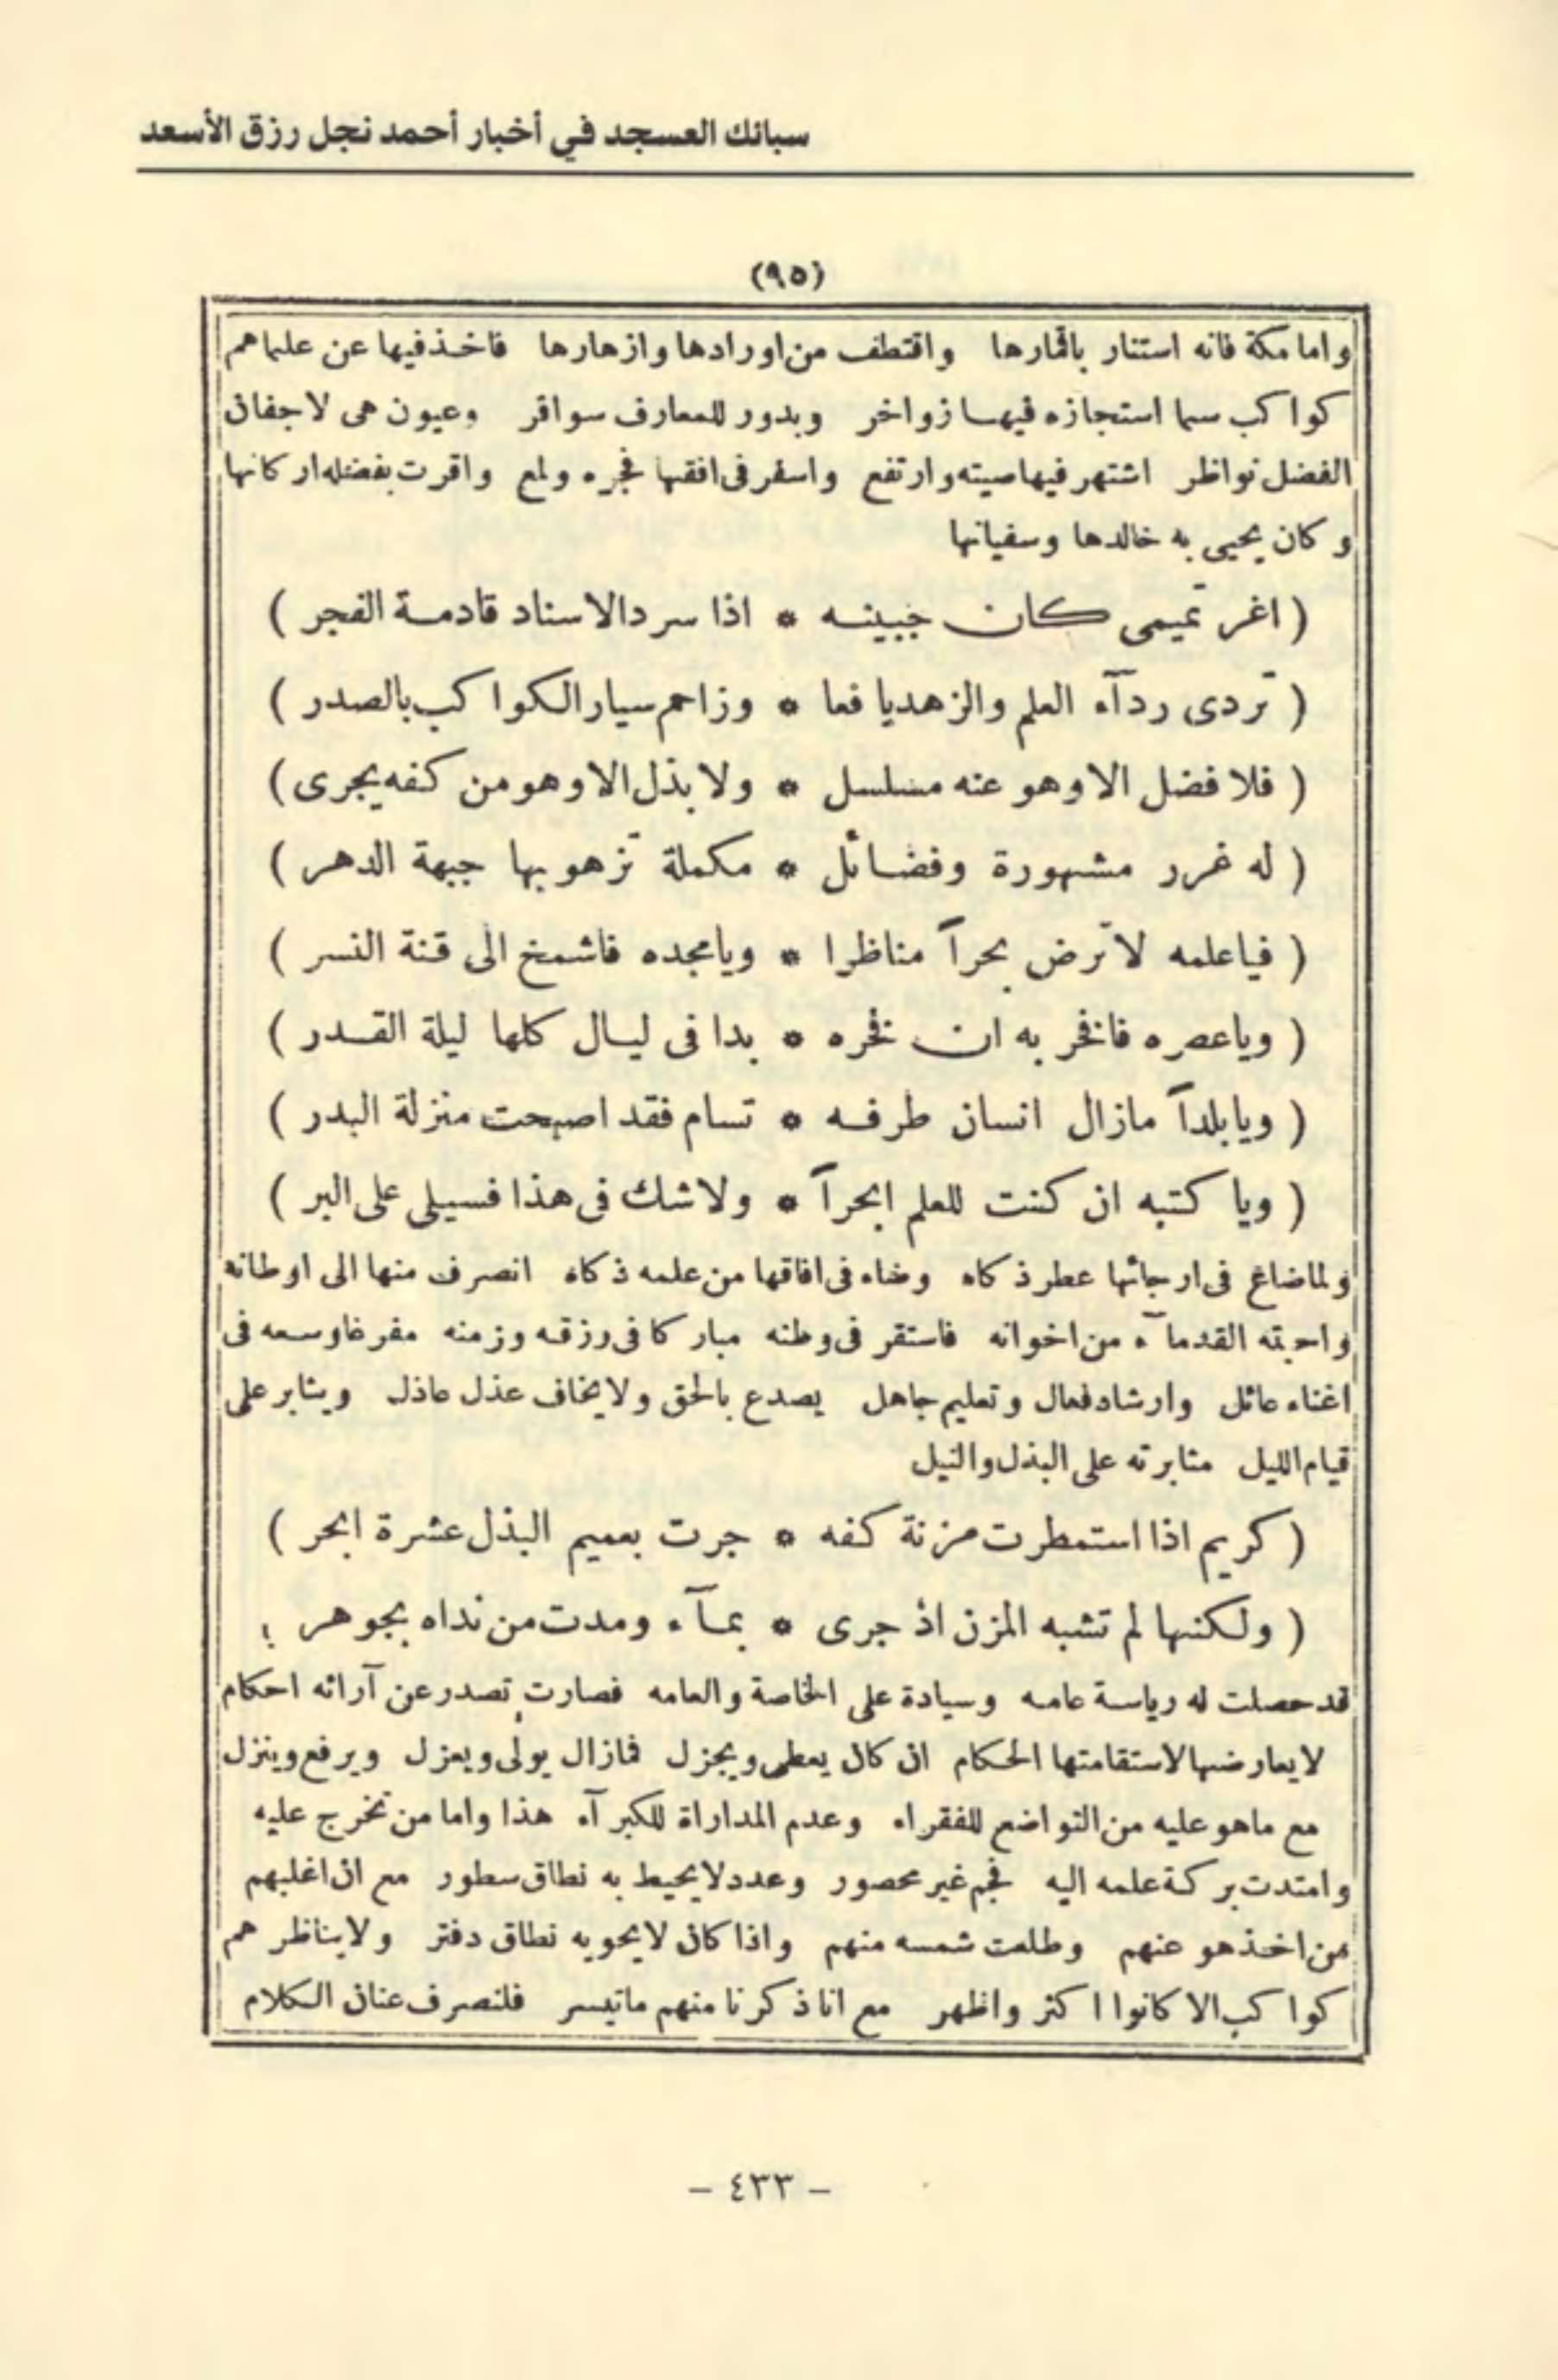 سبائك العسجد في أخبار أحمد نجل رزق الأسعد
(٩٥)
واما مكة فانه استنار باقمارها واقتطف من اورادها وازهارها فاخذ فيها عن علماهم
كواكب سما استجازه فيها زواخر وبدور للمعارف سوافر وعيون هى لاجفان
الفضل نواظر اشتهر فيها صيته وارتفع واسفر فى افقها فجره ولمع واقرت بفضله اركانها
وكان يحيى به خالدها وسفيانها
( اغر تميمى كان جبينه * اذا سرد الاسناد قادمة الفجر )
( تردى ردآء العلم والزهد يافعا * وزاحم سيار الكواكب بالصدر )
( فلا فضل الا وهو عنه مسلسل * ولا بذل الا وهو من كفه يجرى )
( له غرر مشهورة وفضائل * مكملة تزهو بها جبهة الدهر )
( فياعلمه لا ترض بحرآ مناظرا * ويامجده فاشمخ الى قنة النسر )
( وياعصره فافخر به ان فخره * بدا فى ليال كلها ليلة القدر )
( ويابلدآ مازال انسان طرفه * تسام فقد اصبحت منزلة البدر )
( ويا كتبه ان كنت للعلم ابحرآ * ولا شك فى هذا فسيلى على البر )
ولماضاغ فى ارجائها عطر ذكاه وضاء فى افاقها من علمه ذكاه انصرف منها الى اوطانه
واحبته القدمآء من اخوانه فاستقر فى وطنه مباركا فى رزقه وزمنه مفرغا وسعه فى
اغناء عائل وارشاد فعال وتعليم جاهل يصدع بالحق ولا يخاف عذل عاذل ويثابر على
قيام الليل مثابرته على البذل والنيل
( كريم اذا استمطرت مزنة كفه * جرت بعميم البذل عشرة ابحر )
( ولكنها لم تشبه المزن اذ جرى * بمآء ومدت من نداه بجوهر )
قد حصلت له رياسة عامه وسيادة على الخاصة والعامه فصارت تصدر عن آرائه احكام
لا يعارضها لاستقامتها الحكام ان كان يعطى ويجزل فمازال يولى ويعزل ويرفع وينزل
مع ماهو عليه من التواضع للفقراء وعدم المداراة للكبرآء هذا واما من تخرج عليه
وامتدت بركة علمه اليه فجم غير محصور وعدد لا يحيط به نطاق سطور مع ان اغلبهم
ممن اخذ هو عنهم وطلعت شمسه منهم واذا كان لا يحويه نطاق دفتر ولا يناظرهم
كواكب الا كانوا اكثر واظهر مع انا ذكرنا منهم ماتيسر فلنصرف عنان الكلام
- ٤٣٣ -